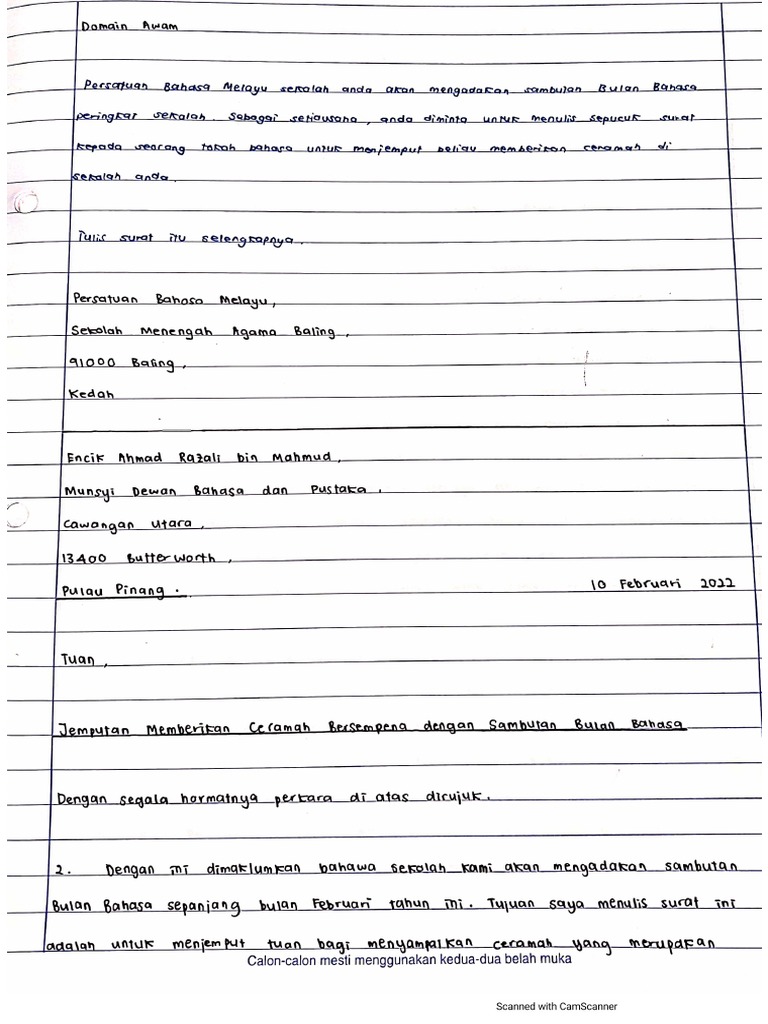 Domain Awam
Persatuan Bahasa Melayu sekolah anda akan mengadakan sambutan Bulan Bahasa
peringkat sekolah. Sebagai setiausaha, anda diminta untuk menulis sepucuk surat
kepada seorang tokoh bahasa untuk menjemput beliau memberikan ceramah di
sekolah anda.
Tulis surat itu selengkapnya.
Persatuan Bahasa Melayu,
Sekolah Menengah Agama Baling,
91000 Baling,
Kedah
Encik Ahmad Razali bin Mahmud,
Munsyi Dewan Bahasa dan Pustaka,
Cawangan Utara,
13400 Butterworth,
Pulau Pinang. 10 Februari 2022
Tuan,
Jemputan Memberikan Ceramah Bersempena dengan Sambutan Bulan Bahasa
Dengan segala hormatnya perkara di atas dirujuk.
2. Dengan ini dimaklumkan bahawa sekolah kami akan mengadakan sambutan
Bulan Bahasa sepanjang bulan Februari tahun ini. Tujuan saya menulis surat ini
adalah untuk menjemput tuan bagi menyampaikan ceramah yang merupakan
Calon-calon mesti menggunakan kedua-dua belah muka
Scanned with CamScanner